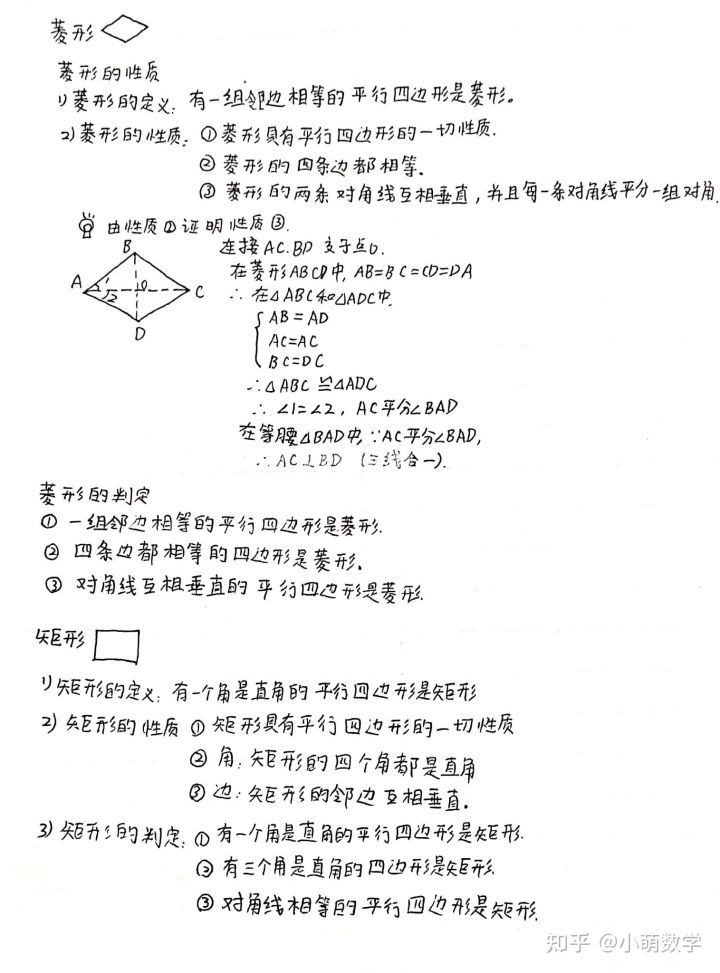 菱形
菱形的性质
1) 菱形的定义: 有一组邻边相等的平行四边形是菱形。
2) 菱形的性质: ① 菱形具有平行四边形的一切性质.
② 菱形的四条边都相等.
③ 菱形的两条对角线互相垂直, 并且每一条对角线平分一组对角.
由性质②证明性质③.
B
A
1
2
O
C
D
连接AC.BD 交于点O.
在菱形ABCD中, AB=BC=CD=DA
∴ 在△ABC和△ADC中,
AB=AD
AC=AC
BC=DC
∴△ABC≌△ADC
∴ ∠1=∠2, AC平分∠BAD
在等腰△BAD中, ∵AC平分∠BAD,
∴ AC⊥BD (三线合一).
菱形的判定
① 一组邻边相等的平行四边形是菱形.
② 四条边都相等的四边形是菱形.
③ 对角线互相垂直的平行四边形是菱形.
矩形
1) 矩形的定义: 有一个角是直角的平行四边形是矩形
2) 矩形的性质 ① 矩形具有平行四边形的一切性质
② 角: 矩形的四个角都是直角
③ 边: 矩形的邻边互相垂直.
3) 矩形的判定: ① 有一个角是直角的平行四边形是矩形.
② 有三个角是直角的四边形是矩形.
③ 对角线相等的平行四边形是矩形.
知乎 @小萌数学